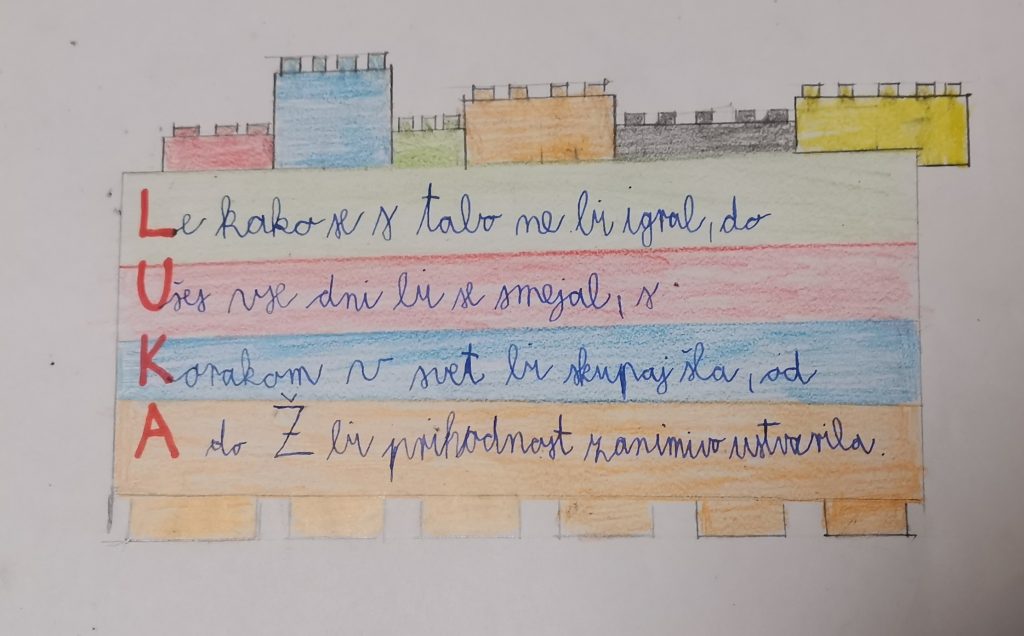 Le kako se s tabo ne bi igral, do
Ušes vse dni bi se smejal, s
Korakom v svet bi skupaj šla, od
A do Ž bi prihodnost zanimivo ustvarila.